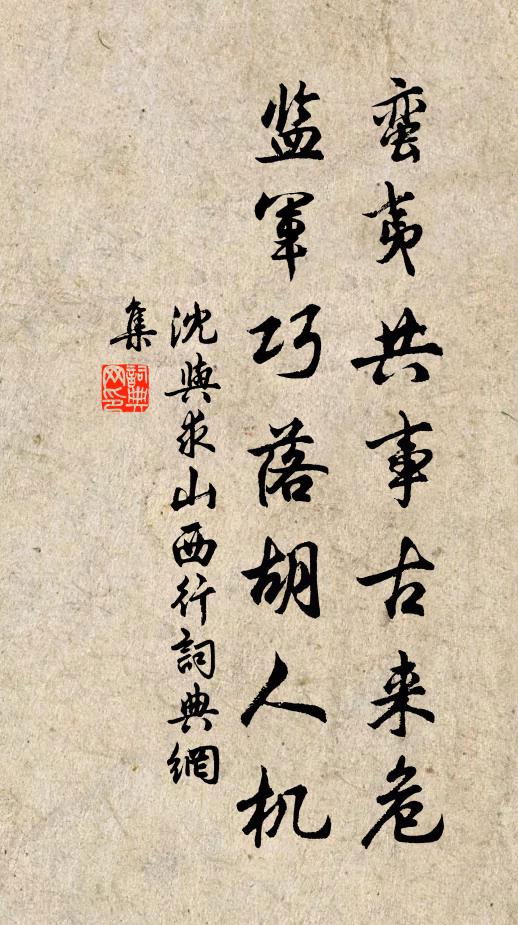 蛮夷共事古来危
监军巧落胡人机
沈與求山西行詞典網
集
詞典
网印